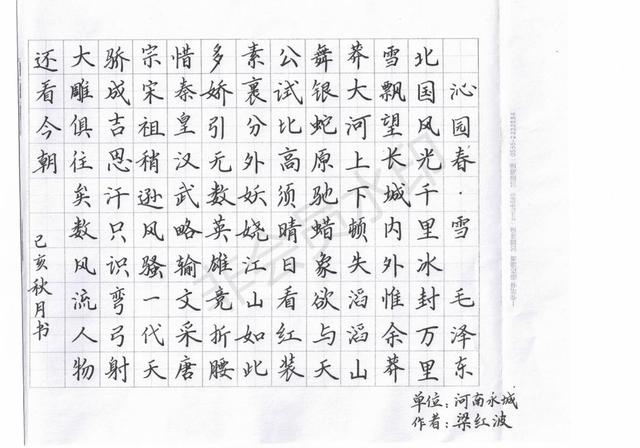 沁园春·雪 毛泽东
北国风光千里冰封万里
雪飘望长城内外惟余莽
莽大河上下顿失滔滔山
舞银蛇原驰蜡象欲与天
公试比高须晴日看红装
素裹分外妖娆江山如此
多娇引无数英雄竞折腰
惜秦皇汉武略输文采唐
宗宋祖稍逊风骚一代天
骄成吉思汗只识弯弓射
大雕俱往矣数风流人物
还看今朝 己亥秋月书
单位：河南永城
作者：梁红波
非会员水印